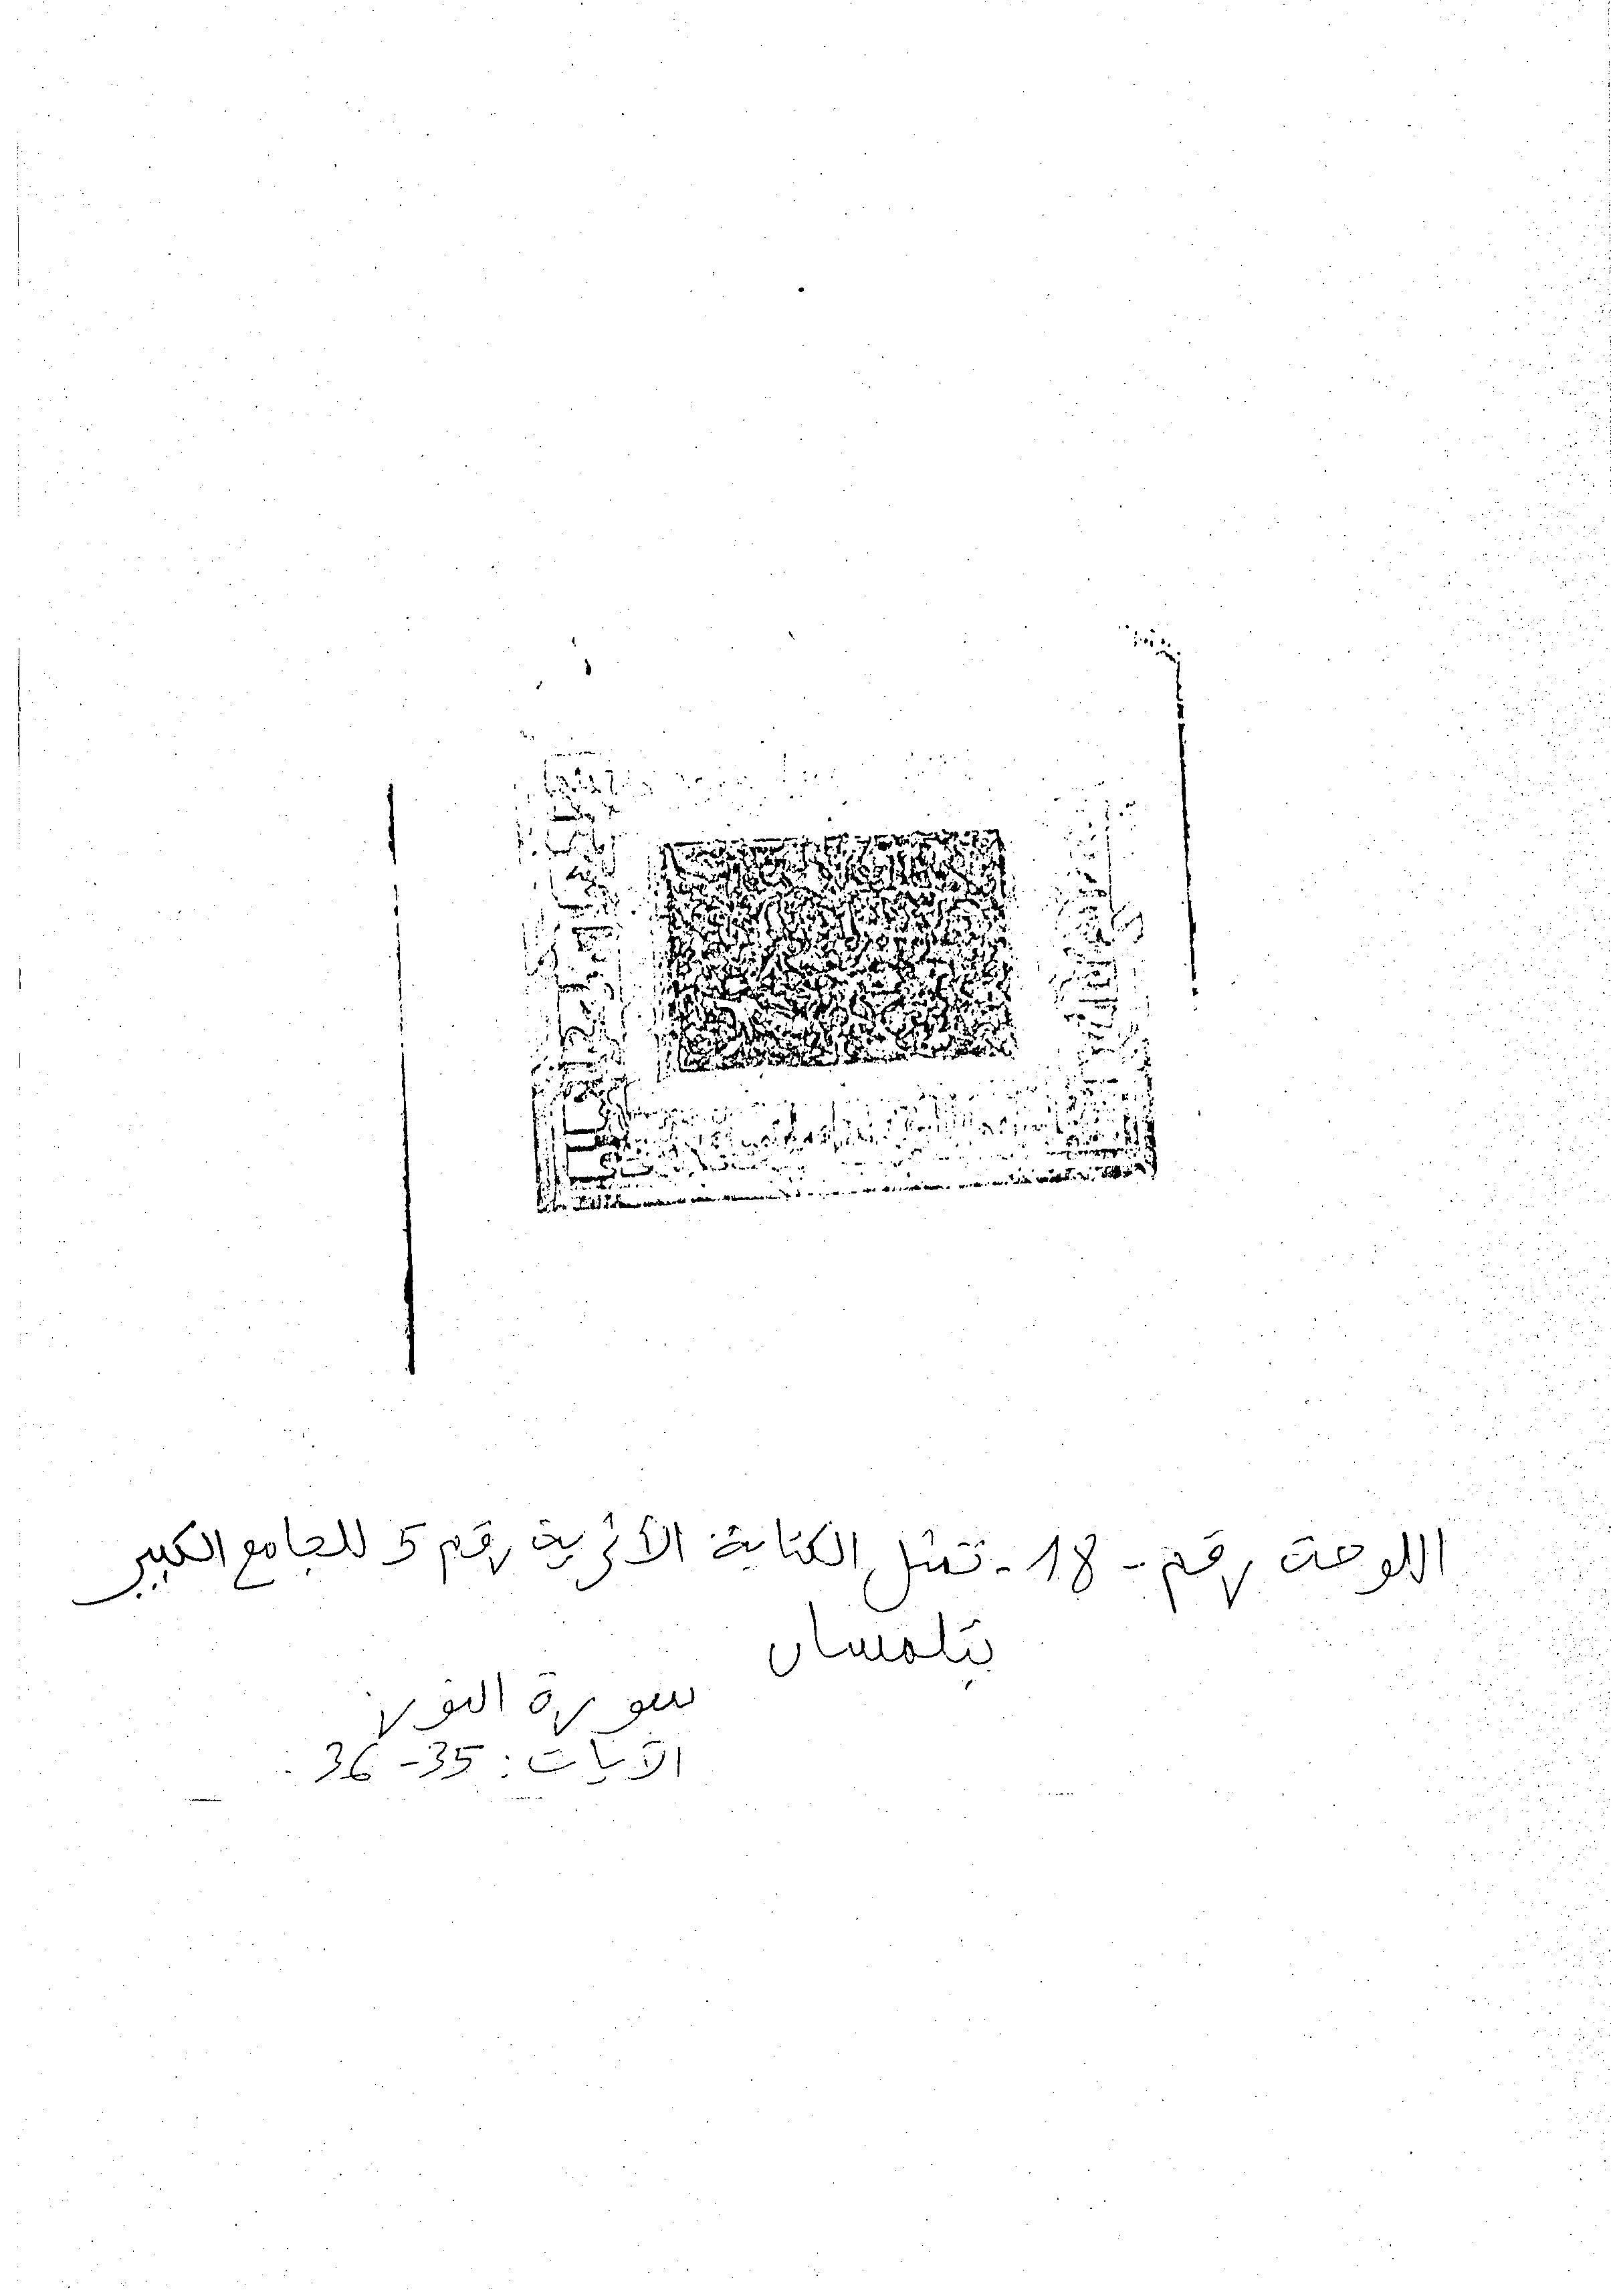 اللوحة رقم - 18 - تمثل الكتابة الأثرية رقم 5 للجامع الكبير
بتلمسان
سورة النور
الآيات : 35-36 .